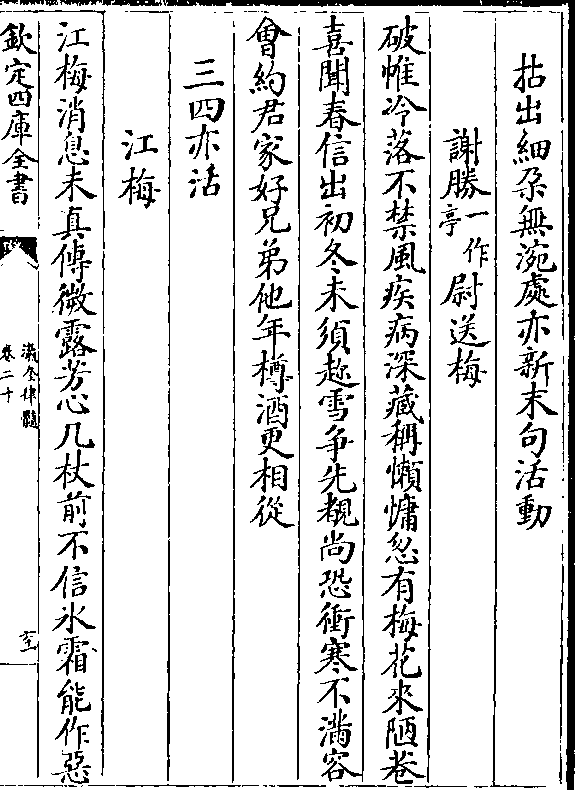 拈出細朶無涴處亦新末句活動
謝勝一作亭尉送梅
破帷冷落不禁風疾病深藏稱懶慵忽有梅花來陋巷
喜聞春信出初冬未須趂雪争先覩尚恐衝寒不滿容
㑹約君家好兄弟他年樽酒更相從
三四亦活
江梅
江梅消息未真傳微露芳心几杖前不信氷霜能作惡
欽定四庫全書
瀛奎律髓
卷二十